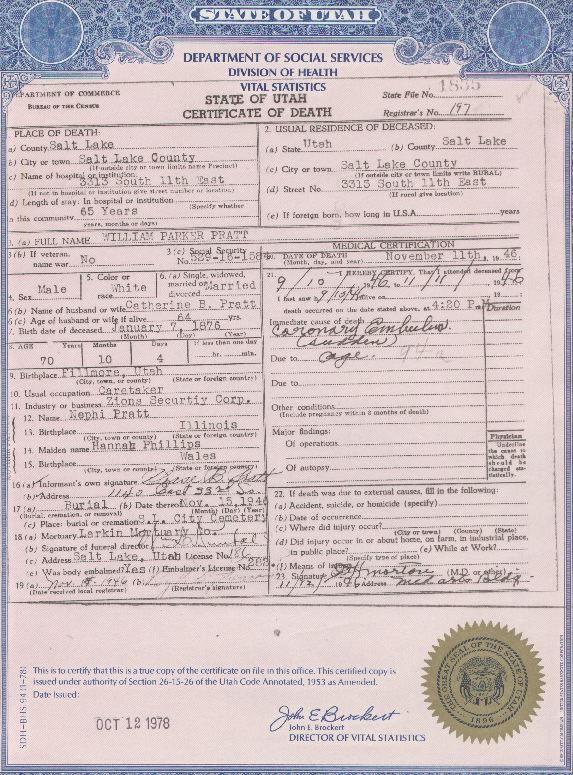 STATE OF UTAH
DEPARTMENT OF SOCIAL SERVICES
DIVISION OF HEALTH
VITAL STATISTICS
DEPARTMENT OF COMMERCE
BUREAU OF THE CENSUS
STATE OF UTAH
CERTIFICATE OF DEATH
State File No. 1835
Registrar's No. 197
PLACE OF DEATH:
a) County Salt Lake
b) City or town Salt Lake County
(If outside city or town limits name Precinct)
c) Name of hospital or institution
3313 South 11th East
(If not in hospital or institution give street number or location)
d) Length of stay: In hospital or institution
(Specify whether
in this community 65 Years
years, months or days)
2. USUAL RESIDENCE OF DECEASED:
(a) State Utah (b) County Salt Lake
(c) City or town Salt Lake County
(If outside city or town limits write RURAL)
(d) Street No. 3313 South 11th East
(If rural give location)
(e) If foreign born, how long in U.S.A. years
3. (a) FULL NAME WILLIAM PARKER PRATT
3(b) If veteran, name war No
3(c) Social Security No.
4. Sex Male
5. Color or race White
6.(a) Single, widowed, married or divorced Married
6(b) Name of husband or wife Catherine B. Pratt
6(c) Age of husband or wife if alive 64 yrs.
7. Birth date of deceased January 7, 1876
(Month) (Day) (Year)
8. AGE Years 70 Months 10 Days 4 If less than one day
hr. min.
9. Birthplace Fillmore, Utah
(City, town, or county) (State or foreign country)
10. Usual occupation Caretaker
11. Industry or business Zions Securtiy Corp.
12. Name Nephi Pratt
13. Birthplace Illinois
(City, town or county) (State or foreign country)
14. Maiden name Hannah Phillips
15. Birthplace Wales
(City, town or county) (State or foreign country)
16(a) Informant's own signature
(b) Address 1140 East 33rd So.
17(a) Burial (b) Date thereof Nov. 15, 1946
(Burial, cremation, or removal) (Month) (Day) (Year)
(c) Place: burial or cremation S.L. City Cemetery
18(a) Mortuary Larkin Mortuary Co.
(b) Signature of funeral director
(c) Address Salt Lake, Utah License No. 186
(c) Was body embalmed? Yes (f) Embalmer's License No. 268
19(a) Nov 1946 (b)
(Date received local registrar) (Registrar's signature)
MEDICAL CERTIFICATION
20. DATE OF DEATH November 11th, 1946
(Month, day, and year)
21. I HEREBY CERTIFY, That I attended deceased from
9/10 1946 to 11/11 1946
I last saw alive on 19
death occurred on the date stated above, at 4:20 P.M.
Duration
Immediate cause of death
Coronary Embolism
(sudden)
Due to age.
Due to
Other conditions
(Include pregnancy within 3 months of death)
Major findings:
Of operations
Of autopsy
Physician
Underline the cause to which death should be charged statistically.
22. If death was due to external causes, fill in the following:
(a) Accident, suicide, or homicide (specify)
(b) Date of occurrence
(c) Where did injury occur?
(City or town) (County) (State)
(d) Did injury occur in or about home, on farm, in industrial place, in public place?
(e) While at Work?
(Specify type of place)
(f) Means of Injury
23. Signature (M.D. or other)
11/12/1946 Address Medical Arts Bldg.
This is to certify that this is a true copy of the certificate on file in this office. This certified copy is
issued under authority of Section 26-15-26 of the Utah Code Annotated, 1953 as Amended.
Date Issued:
OCT 12 1978
John E Brockert
John E. Brockert
DIRECTOR OF VITAL STATISTICS
THE GREAT SEAL OF THE STATE OF UTAH
1896
SDH-BHS 94 (1-78)